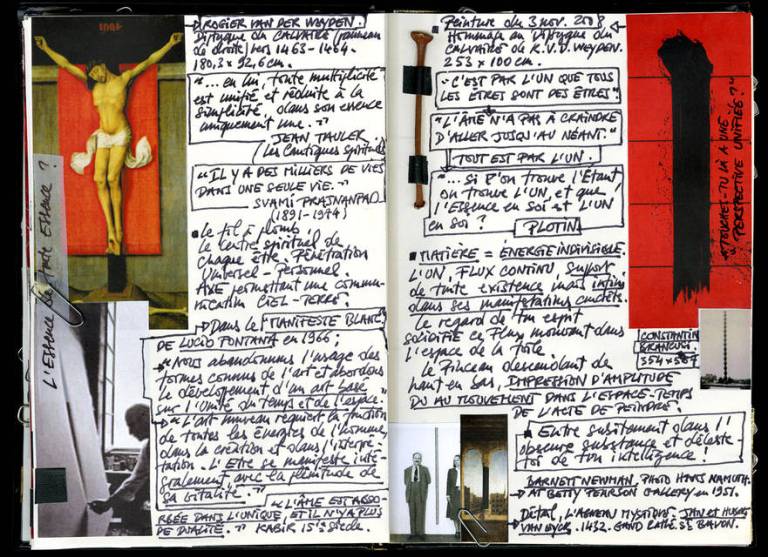 ROGIER VAN DER WEYDEN.
Diptyque du CALVAIRE (panneau
de droite) vers 1463-1464.
180,3 x 92,6 cm.
"... en lui, toute multiplicité
est unifiée et réduite à la
simplicité, dans son essence
uniquement une. "
JEAN TAULER.
(Les Cantiques spirituels
"IL Y A DES MILLIERS DE VIES
DANS UNE SEULE VIE. "
SVAMI-PRAJNANPAD
(1891-1974)
Le fil à plomb,
le centre spirituel de
chaque être. Pénétration
Universel - Personnel.
AXE permettant une commu-
nication CIEL-TERRE.
Dans le MANIFESTE BLANC
DE LUCIO FONTANA en 1966;
"NOUS abandonnons l'usage des
formes connues de l'art et abordons
le développement d'un art basé
sur l'Unité du temps et de l'espace."
"L'art nouveau requiert la fonction
de toutes les énergies de l'homme,
dans la création et dans l'interpré-
tation. L'ETRE se manifeste inté-
gralement, avec la plénitude de
sa vitalité. "
"L'ÂME EST ABSO-
RBÉE DANS L'UNIQUE, ET IL N'Y A PLUS
DE DUALITÉ. " KABIR 15è siècle.
L'Essence de toute Essence ?
Peinture du 3 nov. 2008
Hommage au diptyque du
CALVAIRE de R.V.D WEYDEN.
253 x 100 cm.
"C'EST PAR L'UN QUE TOUS
LES ÊTRES SONT DES ÊTRES"
"L'ÂME N'A PAS À CRAINDRE
D'ALLER JUSQU'AU NÉANT."
TOUT EST PAR L'UN.
"... si l'on trouve l'Étant
on trouve l'UN, et que
l'Essence en Soi est l'UN
en Soi ?
PLOTIN
MATIÈRE = ÉNERGIE INDIVISIBLE.
L'UN, FLUX CONTINU, support
de toute existence mais infini
dans ses manifestations
Le regard de ton esprit
SOLIDIFIE ce Flux mouvant dans
l'espace de la toile.
Le Pinceau descendant de
haut en bas, IMPRESSION D'AMPLITUDE
DU AU MOUVEMENT DANS L'ESPACE-TEMPS
DE L'ACTE DE PEINDRE.
Entre subitement dans l'
obscure substance et déleste-
toi de ton intelligence !
BARNETT NEWMAN, PHOTO HANS NAMUTH.
AT BETTY PEARSON GALLERY en 1951.
Détail, L'AGNEAU MYSTIQUE. JAN et HUBERT
VAN EYCK. 1432. GAND CATHE. ST BAVON.
"TOUCHES-TU LÀ A UNE
PERSPECTIVE UNIFIÉE. ?"
CONSTANTIN
BRANCUSI.